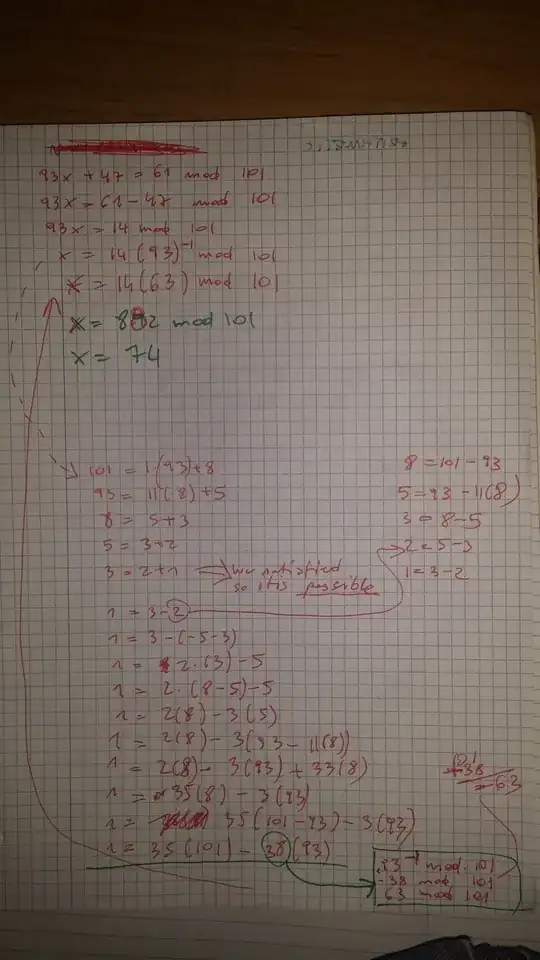 93x + 47 = 61 mod 101
93x = 61 - 47 mod 101
93x = 14 mod 101
x = 14(93)⁻¹ mod 101
x = 14(63) mod 101
x = 882 mod 101
x = 74
101 = 1(93)+8
93 = 11(8)+5
8 = 5+3
5 = 3+2
3 = 2+1 ⇒ satisfied
so it is possible
8 = 101 - 93
5 = 93 - 11(8)
3 = 8-5
2 = 5-3
1 = 3-2
1 = 3-2
1 = 3-(-5-3)
1 = 2·(3)-5
1 = 2·(8-5)-5
1 = 2(8) - 3(5)
1 = 2(8) - 3(93 - 11(8))
1 = 2(8) - 3(93) + 33(8)
1 = 35(8) - 3(93)
1 = 35(101-93) - 3(93)
1 = 35(101) - 38(93)
101
-38
= 63
93⁻¹ mod 101
-38 mod 101
63 mod 101